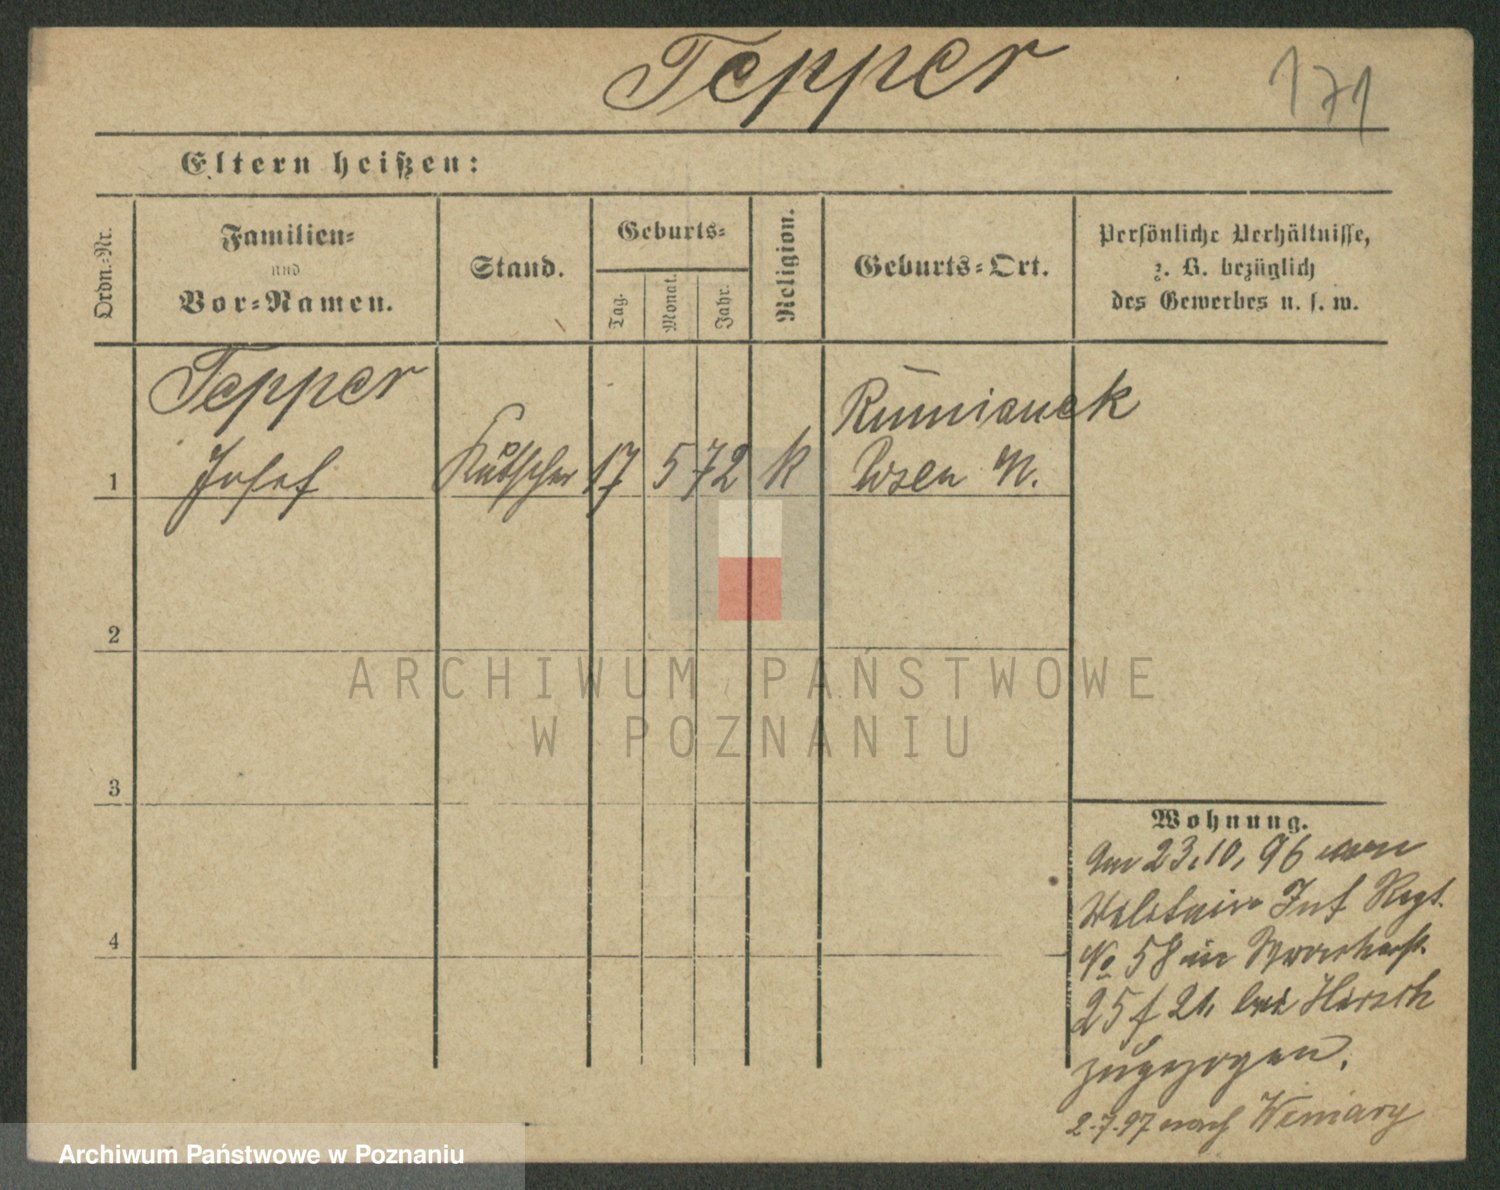 Tepper
171
Eltern heißen:
Ordn.-Nr.
Familien-
und
Vor-Namen.
Stand.
Geburts-
Tag.
Monat.
Jahr.
Religion.
Geburts-Ort.
Persönliche Verhältnisse,
z. B. bezüglich
des Gewerbes u. s. w.
Tepper
Josef
Kutscher
17
5
72
k
Rumianek
Posen W.
1
2
3
4
ARCHIWUM PAŃSTWOWE
W POZNANIU
Wohnung.
Am 23.10.96 vom
Militair Inf Regt.
No 58 in
bei Hirsch
zugezogen.
2.7.97 nach Winiary
Archiwum Państwowe w Poznaniu